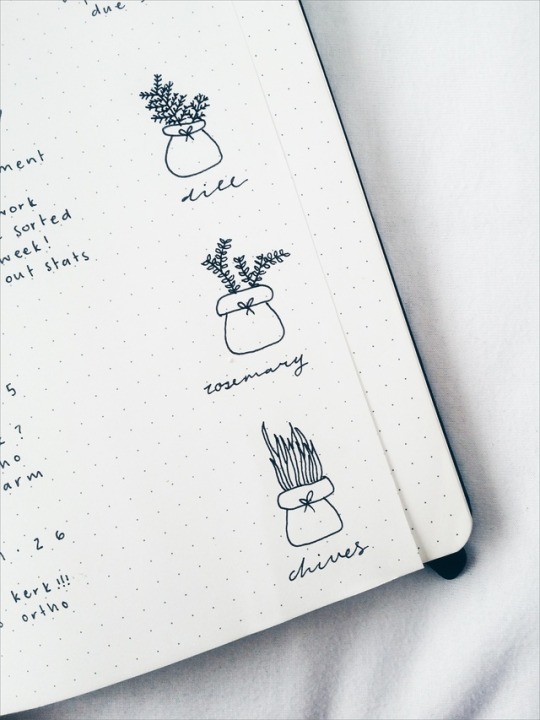 due
dill
rosemary
chives
ment
work
sorted
week!
out stats
5
?
no
arm
1.26
kerk!!!
ortho